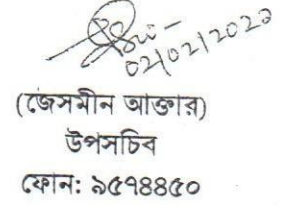 02/02/2023
(জেসমীন আক্তার)
উপসচিব
ফোন: ৯৫৭৪৪৫০